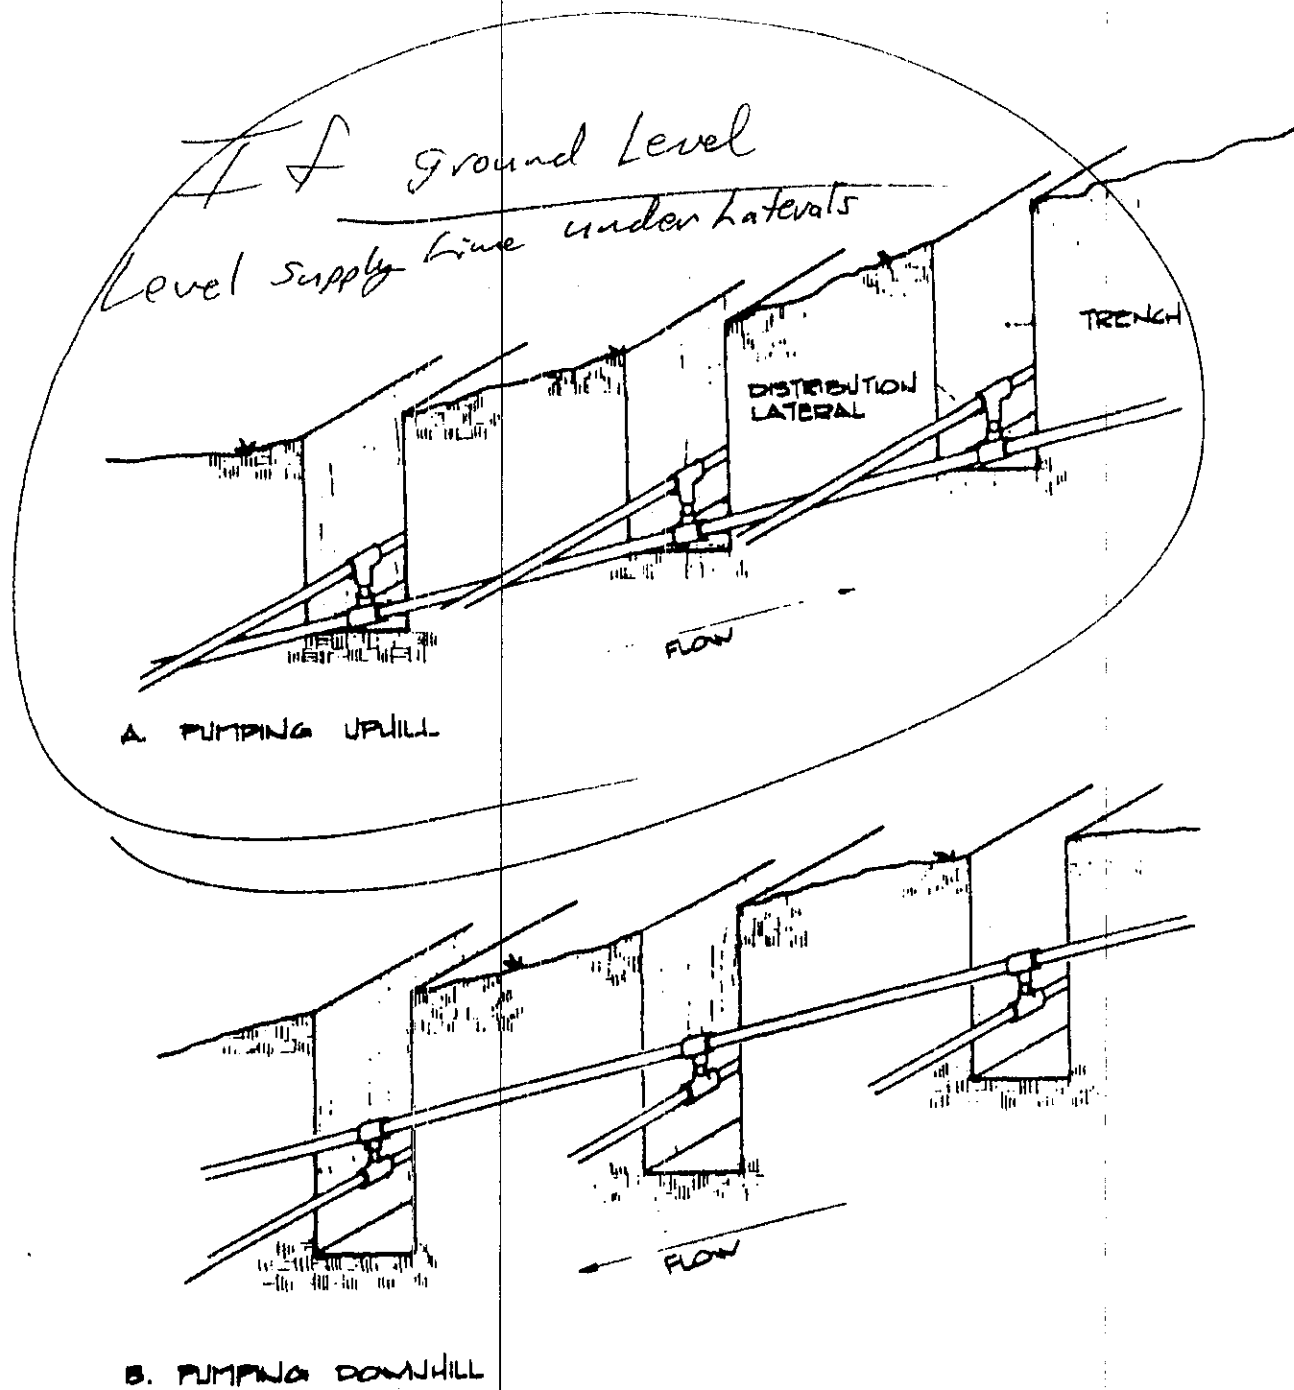 If ground Level
Level Supply Line under Laterals
TRENCH
DISTRIBUTION
LATERAL
FLOW
A. PUMPING UPHILL
FLOW
B. PUMPING DOWNHILL